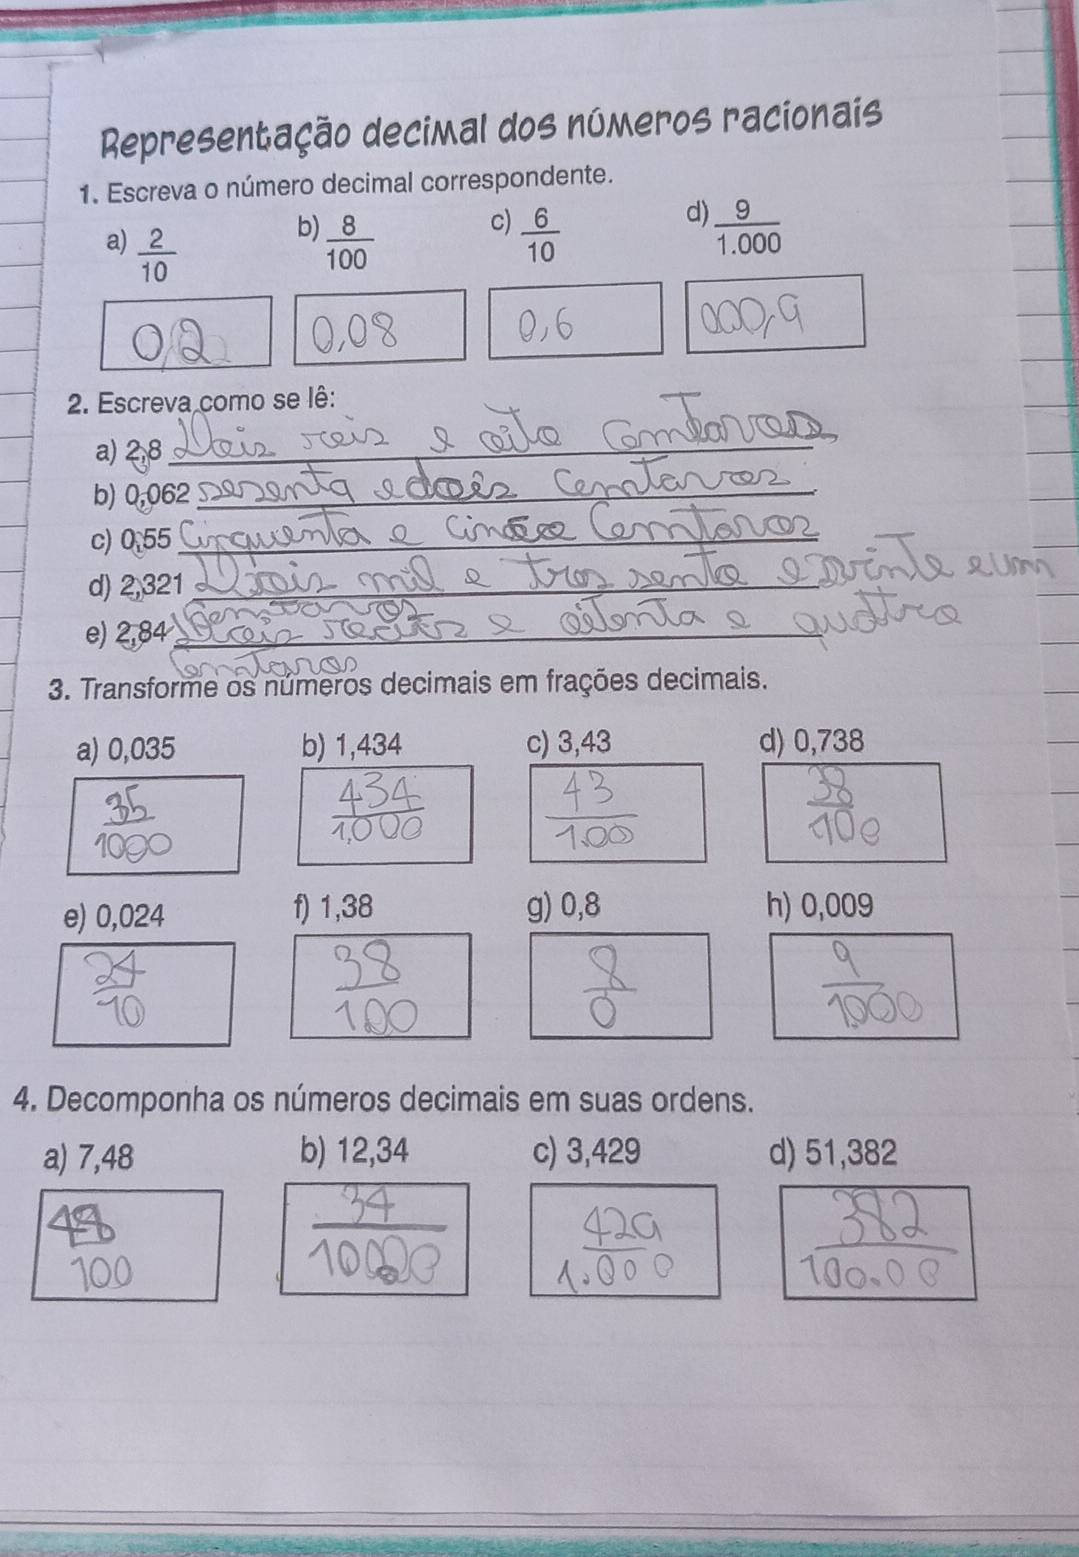 Representação decimal dos números racionais
1. Escreva o número decimal correspondente.
a) 2/10 b) 8/100 c) 6/10 d) 9/1.000
0,2 0,08 0,6 000,9
2. Escreva como se lê:
a) 2,8 Dois reis e oito Centavos
b) 0,062 sesenta e dois Centavos
c) 0,55 Cinquenta e cinco Centavos
d) 2,321 Dois mil e tres sento e vinte e um
Centavos
e) 2,84 Dois reais e oitenta e quatro
Centavos
3. Transforme os números decimais em frações decimais.
a) 0,035 b) 1,434 c) 3,43 d) 0,738
35/1000 434/1,000 43/1.00 38/100
e) 0,024 f) 1,38 g) 0,8 h) 0,009
24/10 38/100 8/0 9/1000
4. Decomponha os números decimais em suas ordens.
a) 7,48 b) 12,34 c) 3,429 d) 51,382
48/100 34/10000 429/1.000 382/100.00